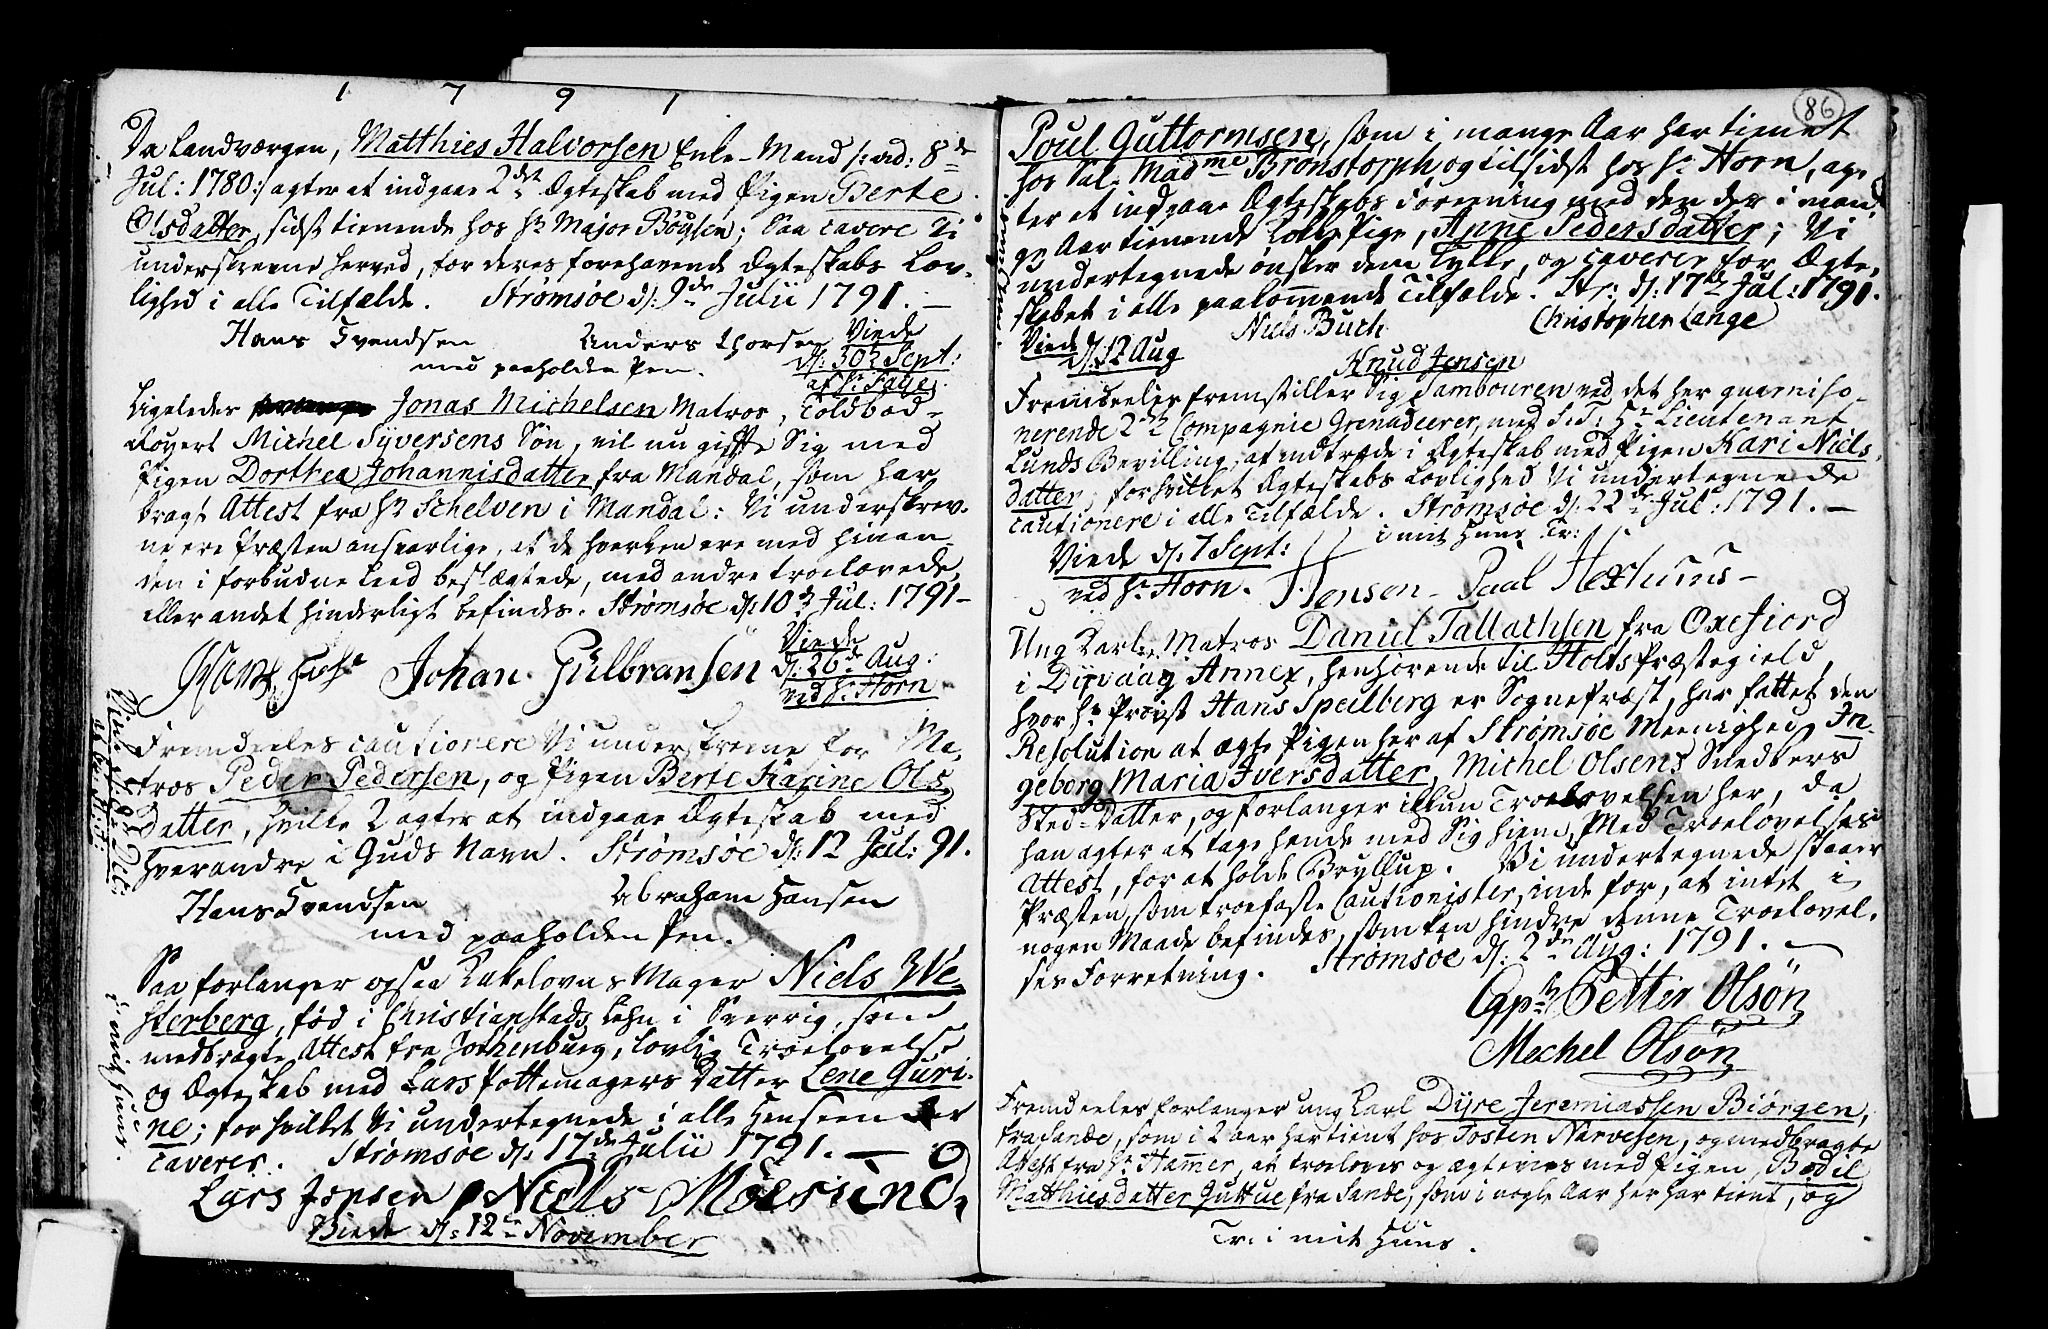 1791
Da Landværgen, Matthies Halvorsen Enke-Mand /: vid: 8de
Jul: 1780:/ agter at indgaae 2det Ægteskab med Pigen Berte
Olsdatter, sidst tienende hos Hr Major Böysen; Saa cavere Vi
underskrevne herved, for deres forehavende Ægteskabs Lov-
lighed i alle Tilfælde. Strømsöe d: 9de Julii 1791. —
Hans Svendsen Anders Thorsen
med paaholden Pen.
Viede
d: 30 Sept:
af Hr Faye.
Ligeledes Jonas Michelsen Matros, Toldbod-
Roxert Michel Syversens Sön, vil nu gifte Sig med
Pigen Dorthea Johannisdatter fra Mandal, som har
bragt Attest fra Hr Schelven i Mandal: Vi underskrev-
ne ere Præsten ansvarlige, at de hverken ere med hinan-
den i forbudne Leed beslægtede, med andre troelovede,
eller andet hinderligt befindes. Strømsöe d: 10de Jul: 1791 —
Johan Gülbransen
Viede
d: 26de Aug:
ved Hr Horn
Fremdeeles cautionere Vi underskrevne for Ma-
tros Peder Pedersen, og Pigen Berte Karine Ols-
datter, hvilke 2 agter at indgaae Ægteskab med
hverandre i Guds Navn. Strømsöe d: 12 Jul: 91.
Hans Svendsen Abraham Hansen
med paaholden Pen.
Saa forlanger ogsaa Kakelovns Mager Niels We-
sterberg, fød i Christianstads Lehn i Sverrig, som
medbragte Attest fra Gothenburg, lovlig Troelovelse
og Ægteskab med Lars Pottemagers Datter Lene Guri-
ne; for hvilket Vi undertegnede i alle Henseender
caverer. Strømsöe d: 17de Julii 1791. —
i mit Huus.
Lars Jensen Niels Moesund
Viede d: 12te November
86
Poul Guttormsen, som i mange Aar har tienet
hos Sal: Madme Bronstorph og tilsidst hos Hr Horn, ag-
ter at indgaae Ægteskabs Forening med den der i man-
ge Aar tienende Pige, Anne Pedersdatter; Vi
undertegnede önsker dem Lykke, og caverer for Ægte-
skabet i alle paakommende Tilfælde. Str: d: 17de Jul: 1791.
Niels Buch Christopher Lange
Viede
d: 12 Aug
Knud Jensen
Fremdeeles fremstiller Sig Tambouren ved det her guarniso-
nerende 2det Compagnie Grenadeerer, med S: T: Hr Lieutenant
Lunds Bevilling, at indtræde i Ægteskab med Pigen Kari Niels-
datter, for hvilket Ægteskabs Lovlighed Vi undertegnede
cautionere i alle Tilfælde. Strømsöe d: 22de Jul: 1791. —
i mit Huus Tr:
Viede d: 7 Sept:
ved Hr Horn.
Hensen Paal
Ung Karl, Matros Daniel Tallachsen fra Oxefiord
i Dirvaag Annex, henhörende til Holts Præstegield,
hvor Hr Provst Hans Speilberg er Sognepræst, har fattet den
Resolution at ægte Pigen her af Strømsöe Meenighed, In-
geborg Maria Iversdatter, Michel Olsens Snedkers
Sted-Datter, og forlanger ikkun Troelovelsen her, da
han agter at tage hende med Sig hiem, Med Troelovelses
Attest, for at holde Bryllup. Vi undertegnede staaer
Præsten, som troefaste Cautionister, inde for, at intet i
nogen Maade befindes, som kan hindre denne Troelovel-
ses Forretning. Strømsöe d: 2den Aug: 1791. —
Petter Olsön
Mechel Olsön
Fremdeeles forlanger ung Karl Dyre Jeremiassen Biörgen,
fra Sande, som i 2 aar har tient hos Tosten Narvesen, og medbragte
Attest fra Hr Hammer, at troeloves og ægtevies med Pigen, Bodil
Matthiesdatter fra Sande, som i nogle Aar her har tient, og
Tr: i mit Huus.